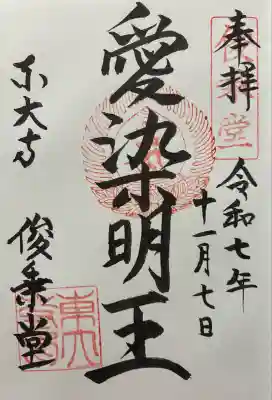 奉拝
令和七年
十一月七日
愛染明王
東大寺
俊乗堂